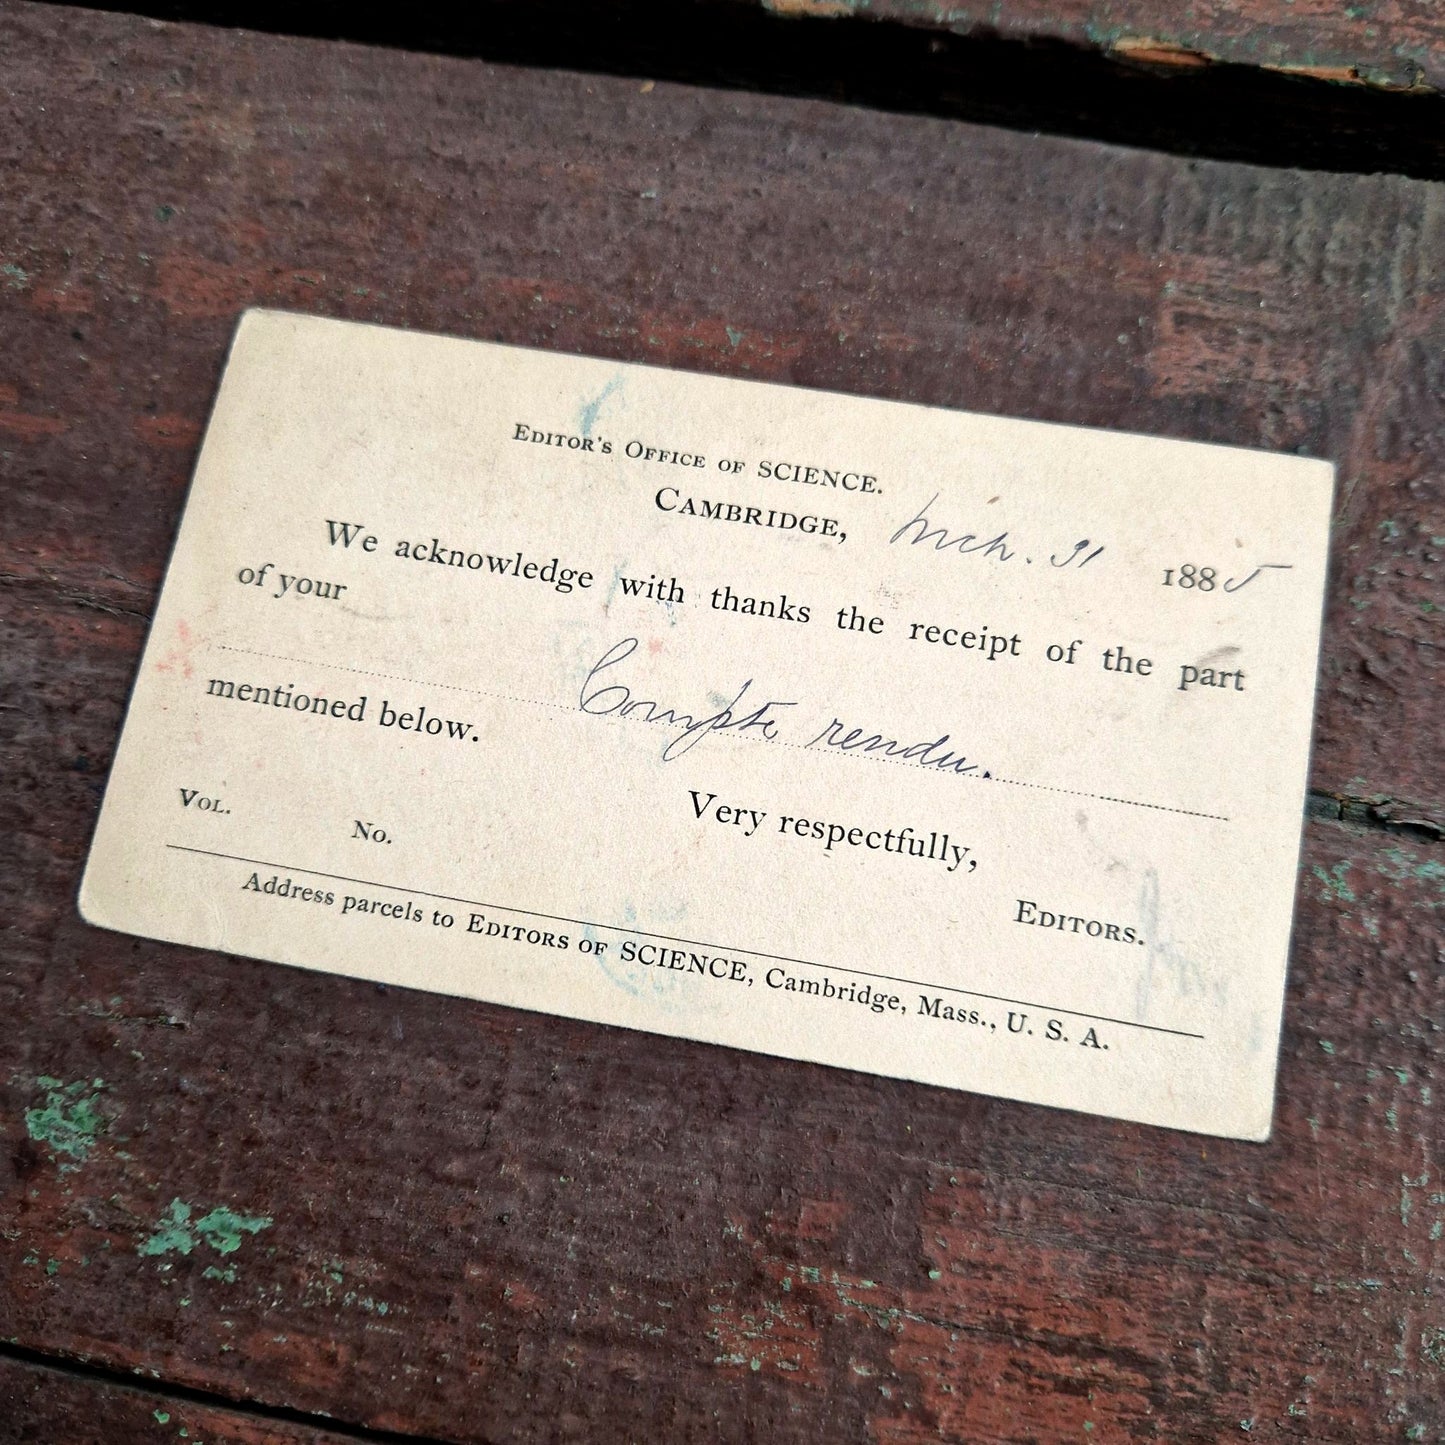 EDITOR'S OFFICE OF SCIENCE.
CAMBRIDGE, Mch. 31 1885
We acknowledge with thanks the receipt of the part
of your
Compte rendu.
mentioned below.
Very respectfully,
VOL. No.
EDITORS.
Address parcels to EDITORS OF SCIENCE, Cambridge, Mass., U. S. A.